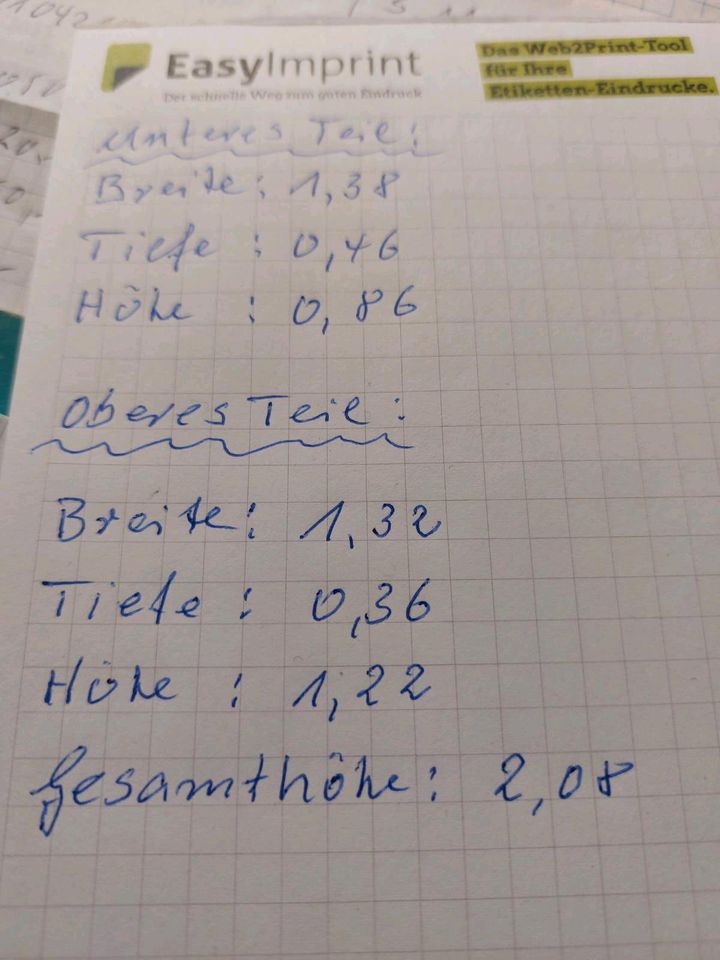 EasyImprint
Der schnelle Weg zum guten Eindruck
Das Web2Print-Tool
für Ihre
Etiketten-Eindrucke.
Unteres Teil:
Breite: 1,38
Tiefe: 0,46
Höhe: 0,86
Oberes Teil:
Breite: 1,32
Tiefe: 0,36
Höhe: 1,22
Gesamthöhe: 2,08